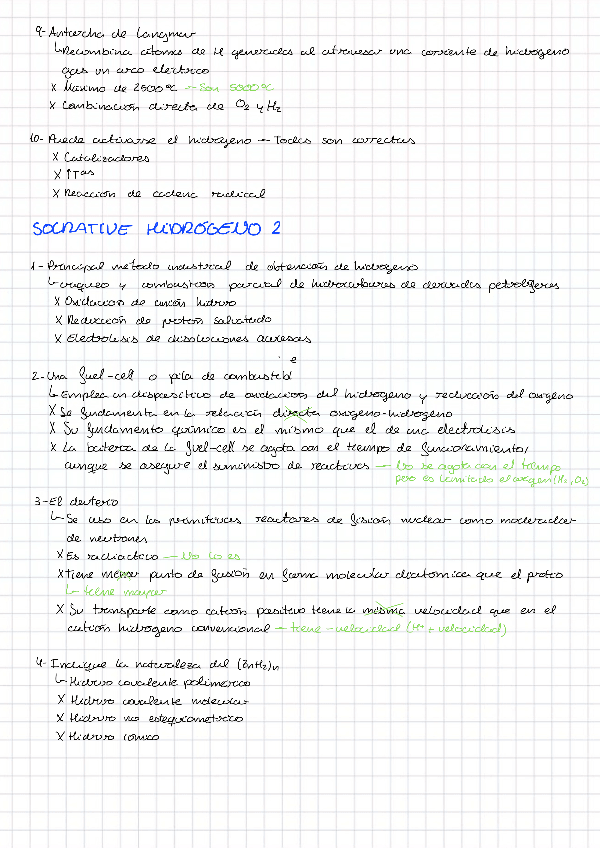 9- Antorcha de Langmuir
↳ Recombina átomos de H generados al atravesar una corriente de hidrógeno
gas un arco eléctrico
X Máximo de 2500ºC → Son 5000ºC
X Combinación directa de O2 y H2
10- Puede activarse el hidrógeno → Todas son correctas
X Catalizadores
X ↑Tas
X Reacción de cadena radical
SOCRATIVE HIDRÓGENO 2
1- Principal método industrial de obtención de hidrógeno
↳ craqueo y combustión parcial de hidrocarburos de derivados petrolíferos
X Oxidación de anión hidruro
X Reducción de protón solvatado
X Electrolisis de disoluciones acuosas
2- Una fuel-cell o pila de combustible
↳ Emplea un dispositivo de oxidación del hidrógeno y reducción del oxígeno
X Se fundamenta en la relación directa oxígeno-hidrógeno
X Su fundamento químico es el mismo que el de una electrolisis
X La batería de la fuel-cell se agota con el tiempo de funcionamiento,
aunque se asegure el suministro de reactivos → No se agota con el tiempo
pero es limitado el oxígen (H2, O2)
3- El deuterio
↳ Se usó en los primitivos reactores de fisión nuclear como moderador
de neutrones
X Es radiactivo → No lo es
X Tiene menor punto de fusión en forma molecular diatómica que el protio
↳ tiene mayor
X Su transporte como catión positivo tiene la misma velocidad que en el
catión hidrógeno convencional → tiene - velocidad (H+ + velocidad)
4- Indique la naturaleza del (ZnH2)n
↳ Hidruro covalente polimérico
X Hidruro covalente molecular
X Hidruro no estequiométrico
X Hidruro iónico